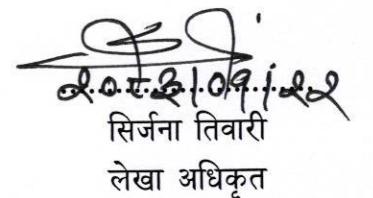 २०८२।०१।२२
सिर्जना तिवारी
लेखा अधिकृत